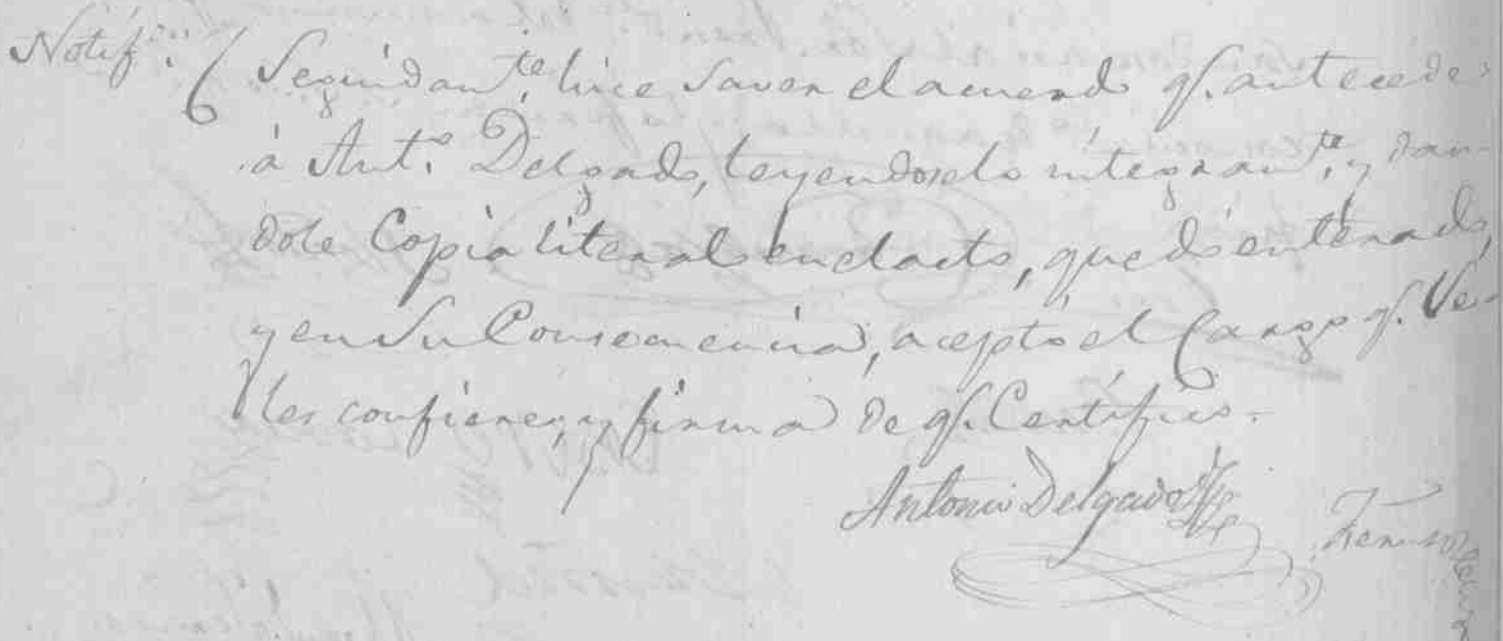 Notif.on Seguidam.te hice saver el acuerdo q.e antecede
á Ant.o Delgado, leyendoselo integram.te y dan-
dole Copia literal en el acto, quedó enterado,
y en su Consecuencia, aceptó el Cargo q.e se
les confiere, y firma de q.e Certifico.
Antonio Delgado